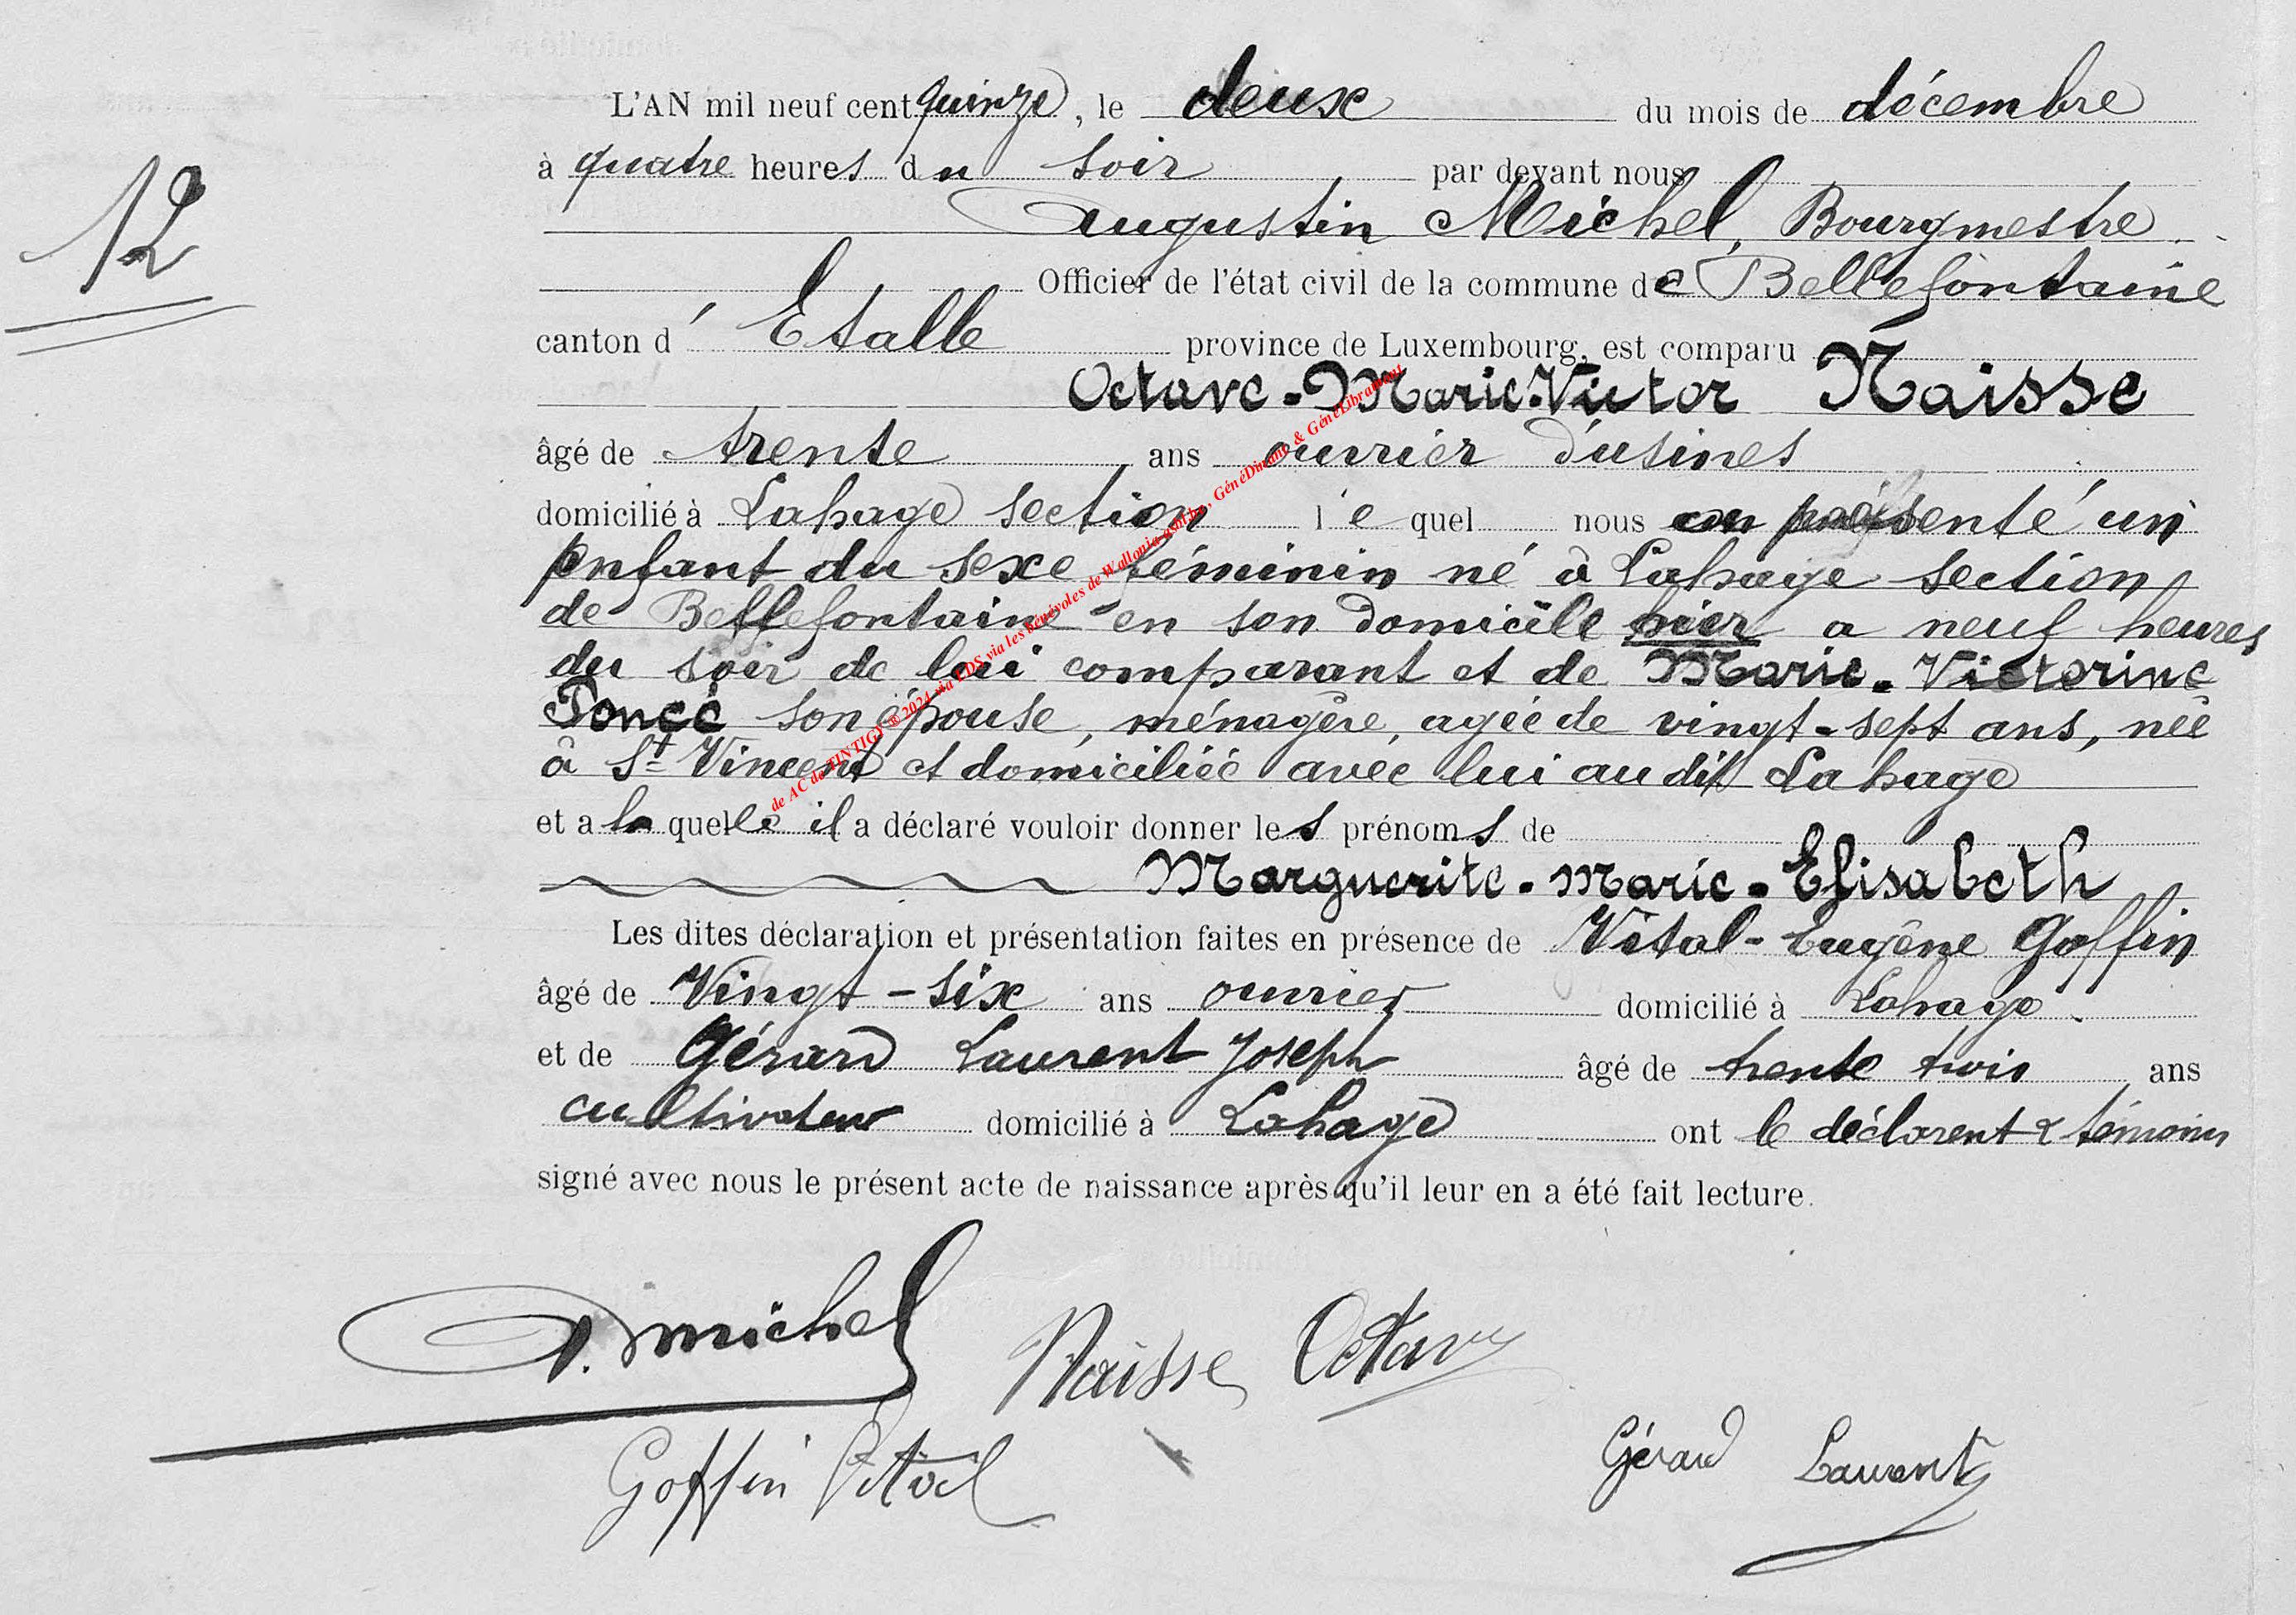 12
L'AN mil neuf cent quinze, le deux du mois de décembre
à quatre heures du soir par devant nous
Augustin Michel, Bourgmestre
Officier de l'état civil de la commune de Bellefontaine
canton d'Etalle province de Luxembourg, est comparu
Octave-Marie-Victor Naisse
âgé de trente ans ouvrier d'usines
domicilié à Lahage section lequel nous présenté un
enfant du sexe féminin né à Lahage section
de Bellefontaine en son domicile hier a neuf heures
du soir de lui comparant et de Marie-Victorine
Poncé son épouse, ménagère, agée de vingt-sept ans, née
à St Vincent et domiciliée avec lui au dit Lahage
et a laquelle il a déclaré vouloir donner les prénoms de
Marguerite-Marie-Elisabeth
Les dites déclaration et présentation faites en présence de Vital-Eugène Goffin
âgé de Vingt-six ans ouvrier domicilié à Lahage.
et de Gérard Laurent Joseph âgé de trente trois ans
cultivateur domicilié à Lahage ont le déclarent & témoins
signé avec nous le présent acte de naissance après qu'il leur en a été fait lecture.
A. Michel
Naisse Octave
Goffin Vital
Gérard Laurent
de AC de TINTIGNY © 2024 via EDS via les bénévoles de Wallonia asbl, GénéDinant & GénéLibramont